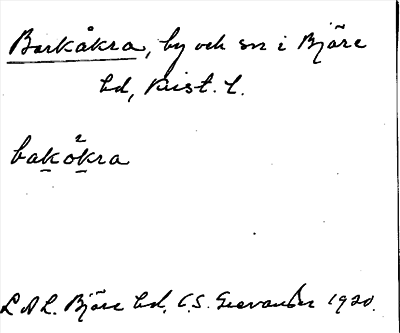 Barkåkra, by och sn i Bjäre
hd, Krist. l.
bakåkra
L A L. Bjäre hd, C.S. 1920.